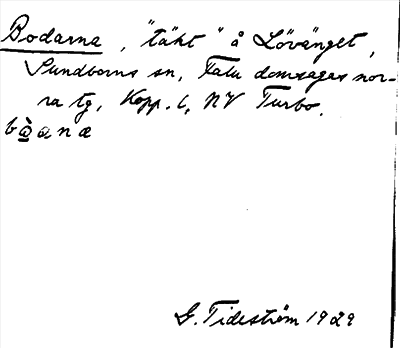 Bodarna, "täkt" å Lövänget,
Sundborns sn, Falu domsagas nor-
ra tg, Kopp. l, NV Turbo.
bà̲a̲næ
G. Tideström 1929